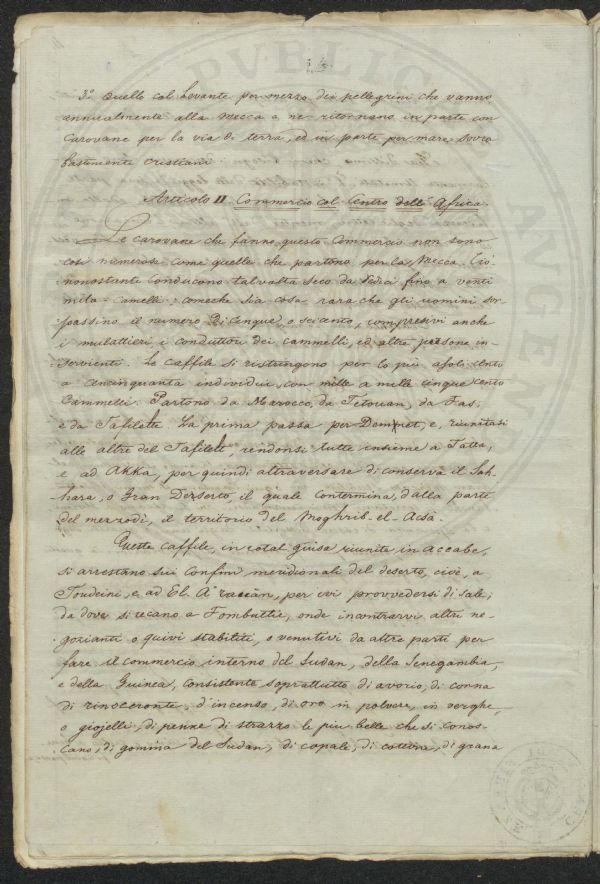 3.° quello col Levante per mezzo dei pellegrini che vanno
annualmente alla Mecca e ne ritornano in parte con
Carovane per la via di terra, ed in parte per mare sovra
bastimente cristiani.
Articolo II Commercio col Centro dell' Africa.
Le carovane che fanno questo Commercio non sono
così numerose come quelle che partono per la Mecca. Ciò
nonostante conducono talvolta seco da sedici fino a venti
mila Camelli: comeche sia cosa rara che gli uomini sor-
passino il numero di cinque, o seicento, compresivi anche
i mulattieri, i conduttori dei cammelli, ed altre persone in-
servienti. Le caffile si ristringono per lo più a soli cento
a cencinquanta individui, con mille a mille cinque cento
Cammelli. Partono da Marocco, da Tetouan, da Fas,
e da Tafilelt. La prima passa per Demnet, e, riunitasi
alle altre del Tafilelt, rendonsi tutte insieme a Tatta,
e ad Akka, per quindi attraversare di conserva il Sah-
hara, o Gran Dezserto, il quale contermina, dalla parte
del mezzodì, il territorio del Moghrib-el-Acsà.
Queste caffile, in cotal guisa riunite in accabe,
si arrestano sui confini meridionali del deserto, cioè, a
Toudeini, e ad El-A'raouan, per ivi provvedersi di sale;
da dove si recano a Tombuttù, onde incontrarvi altri ne-
gozianti o quivi stabiliti, o venutivi da altre parti per
fare il commercio interno del Sudan, della Senegambia,
e della Guinea, consistente soprattutto di avorio, di corna
di rinoceronte, d'incenso, di oro in polvere, in verghe,
o giojelli, di penne di struzzo le più belle che si conos-
cano, di gomma del Sudan, di copale, di cotone, di grana
PUBLIC